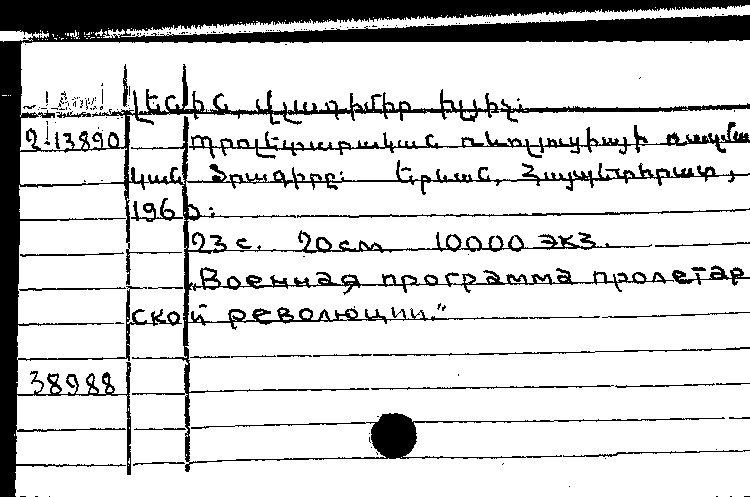 Арм. ԼԵՆԻՆ, Վլադիմիր Իլյիչ:
2-13890 Պրոլետարական ռևոլյուցիայի ռազմա
կան ծրագիրը: Երևան, Հայպետհրատ,
1960:
23 с. 20 см 10000 экз.
„Военная программа пролетар
ской революции."
38988